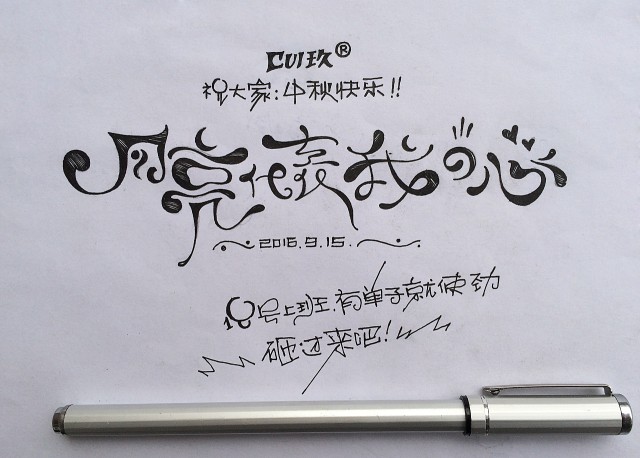 CUI玖®
祝大家:中秋快乐!!
月亮代表我的心
2016.9.15.
18号上班.有单子就使劲
砸过来吧!